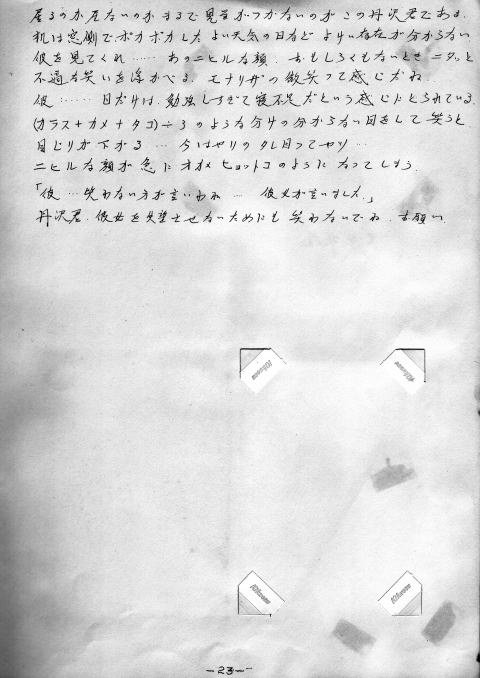 居るのか居ないのかまるで見当がつかないのがこの丹沢君である。
机は窓側でポカポカしたよい天気の日などよけい存在が分からない
彼を見てくれ……あのニヒルな顔、おもしろくもないときニタッと
不適な笑いを浮かべる。モナリザの微笑って感じだね。
彼……目だけは、勉強しすぎて寝不足だという感じにとられている。
(カラス+カメ+タコ)÷3のような分けの分からない目をして笑うと
目じりが下がる…今はやりのタレ目ってヤツ…
ニヒルな顔が急にオカメヒョットコのようになってしまう。
「彼…笑わない方が言いわね…彼女が言いました。」
丹沢君、彼女を失望させないためにも笑わないでね、お願い。
-23-